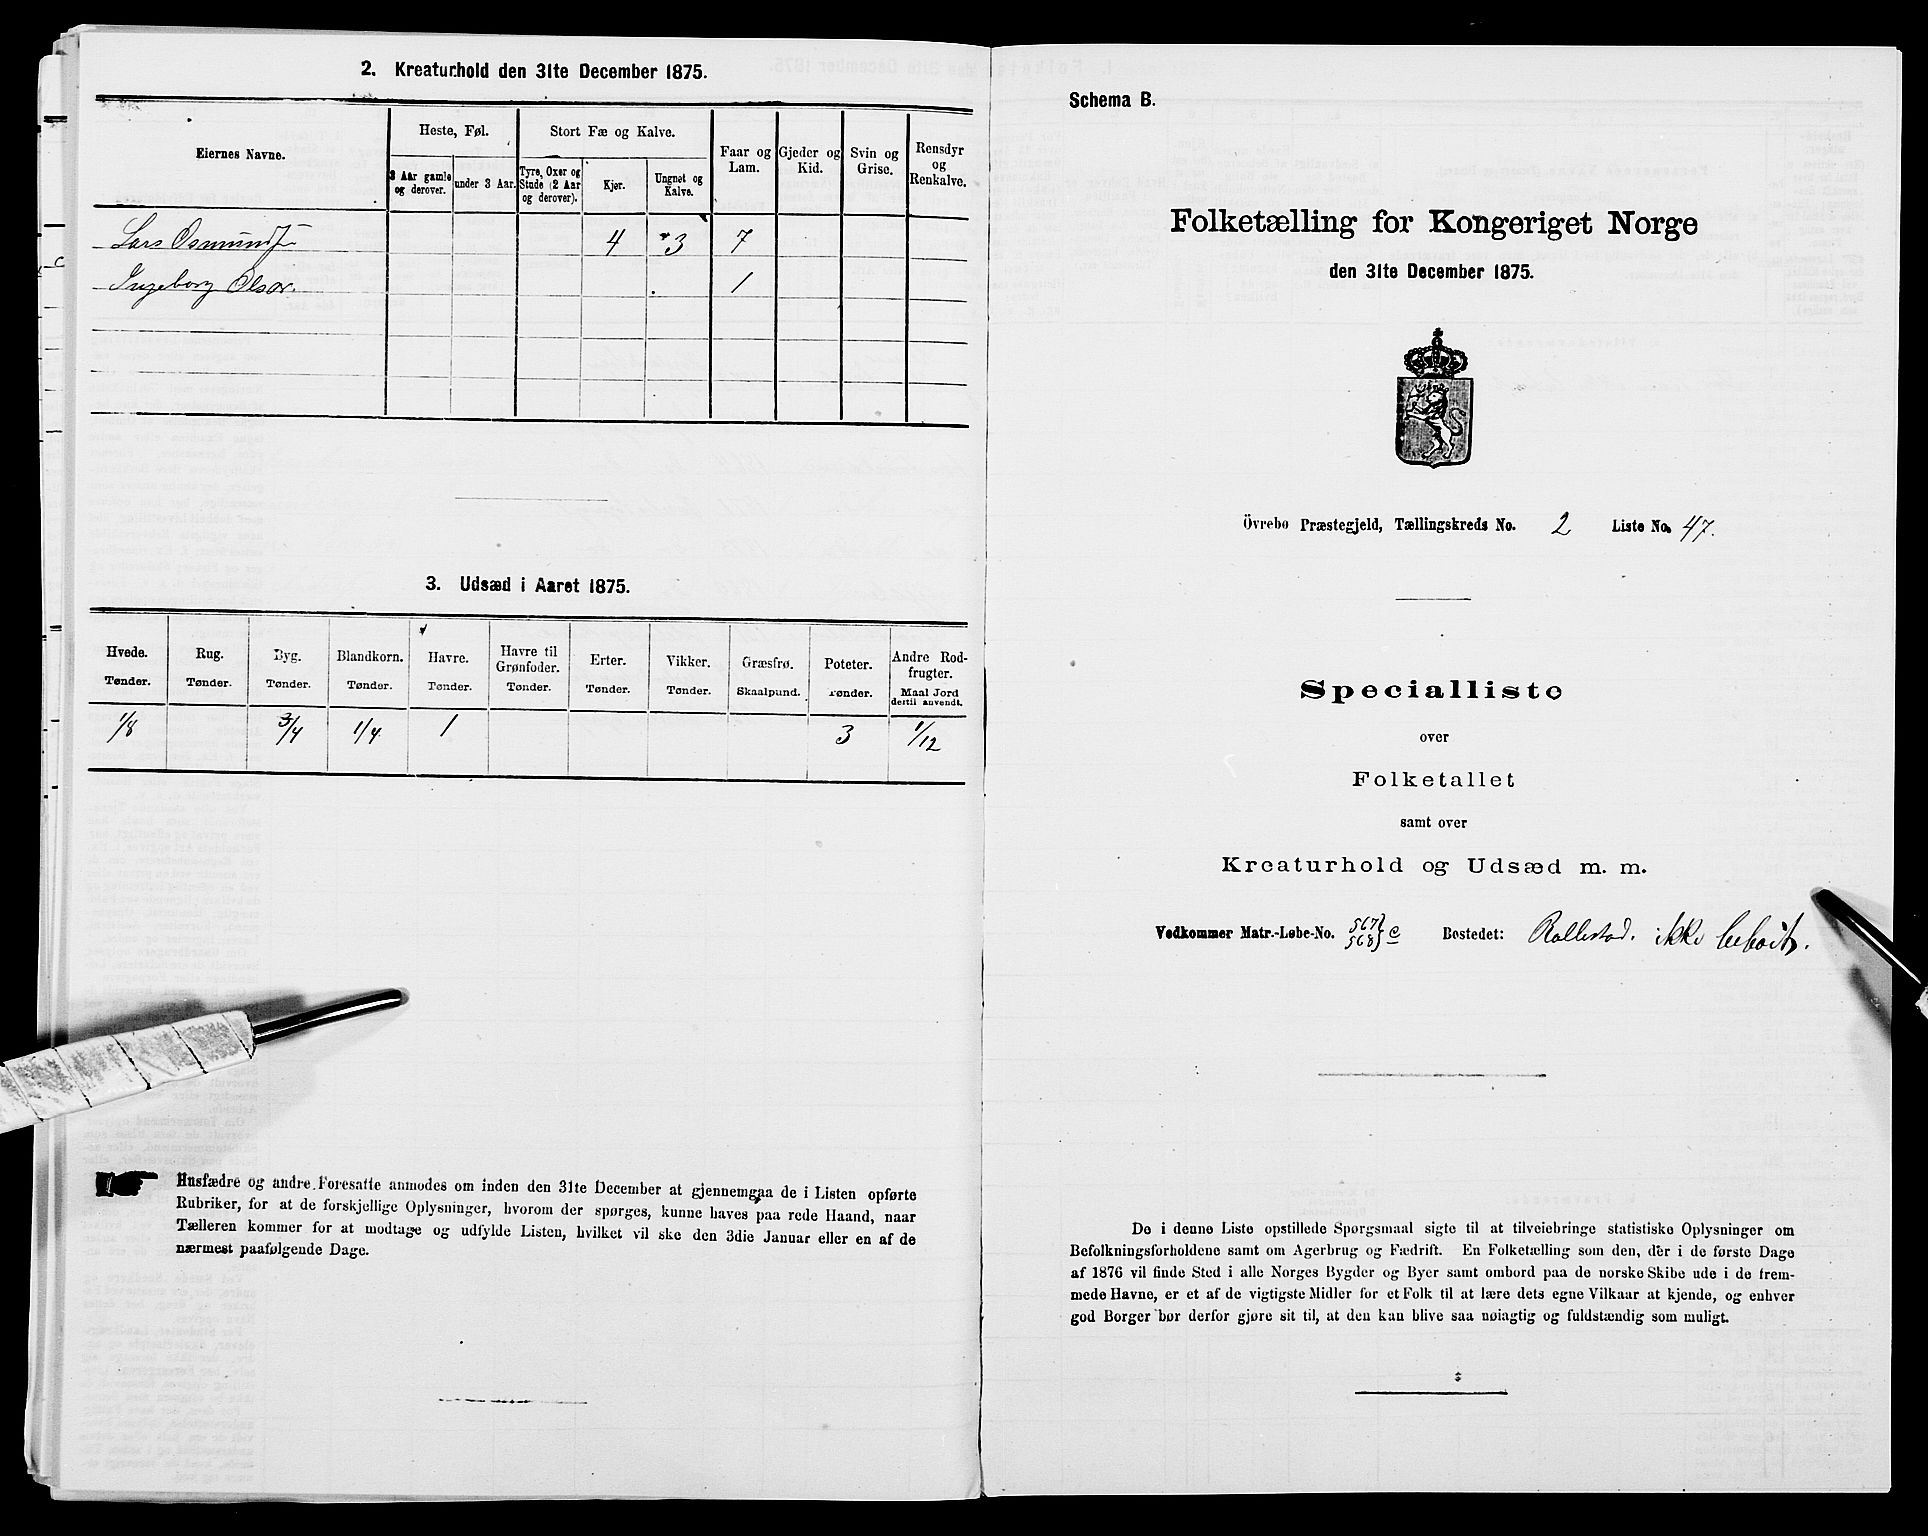 2. Kreaturhold den 31te December 1875.
Eiernes Navne.
Heste, Føl.
Stort Fæ og Kalve.
Faar og Lam.
Gjeder og Kid.
Svin og Grise.
Rensdyr og Renkalve.
3 Aar gamle og derover.
under 3 Aar.
Tyre, Oxer og Stude (2 Aar og derover).
Kjør.
Ungnøt og Kalve.
Lars Osmunds. 4 3 7
Ingeborg Olsdr. 1
3. Udsæd i Aaret 1875.
Hvede. Rug. Byg. Blandkorn. Havre. Havre til Grønfoder. Erter. Vikker. Græsfrø. Poteter. Andre Rodfrugter.
Tønder. Tønder. Tønder. Tønder. Tønder. Tønder. Tønder. Tønder. Skaalpund. Tønder. Maal Jord dertil anvendt.
1/8 3/4 1/4 1 3 1/12
Husfædre og andre Foresatte anmodes om inden den 31te December at gjennemgaa de i Listen opførte
Rubriker, for at de forskjellige Oplysninger, hvorom der spørges, kunne haves paa rede Haand, naar
Tælleren kommer for at modtage og udfylde Listen, hvilket vil ske den 3die Januar eller en af de
nærmest paafølgende Dage.
Schema B.
Folketælling for Kongeriget Norge
den 31te December 1875.
Övrebø Præstegjeld, Tællingskreds No. 2 Liste No. 47.
Specialliste
over
Folketallet
samt over
Kreaturhold og Udsæd m. m.
Vedkommer Matr.-Løbe-No. 567 568 } c Bostedet: Rollestad. ikke beboet.
De i denne Liste opstillede Spørgsmaal sigte til at tilveiebringe statistiske Oplysninger om
Befolkningsforholdene samt om Agerbrug og Fædrift. En Folketælling som den, der i de første Dage
af 1876 vil finde Sted i alle Norges Bygder og Byer samt ombord paa de norske Skibe ude i de frem-
mede Havne, er et af de vigtigste Midler for et Folk til at lære dets egne Vilkaar at kjende, og enhver
god Borger bør derfor gjøre sit til, at den kan blive saa nøiagtig og fuldstændig som muligt.